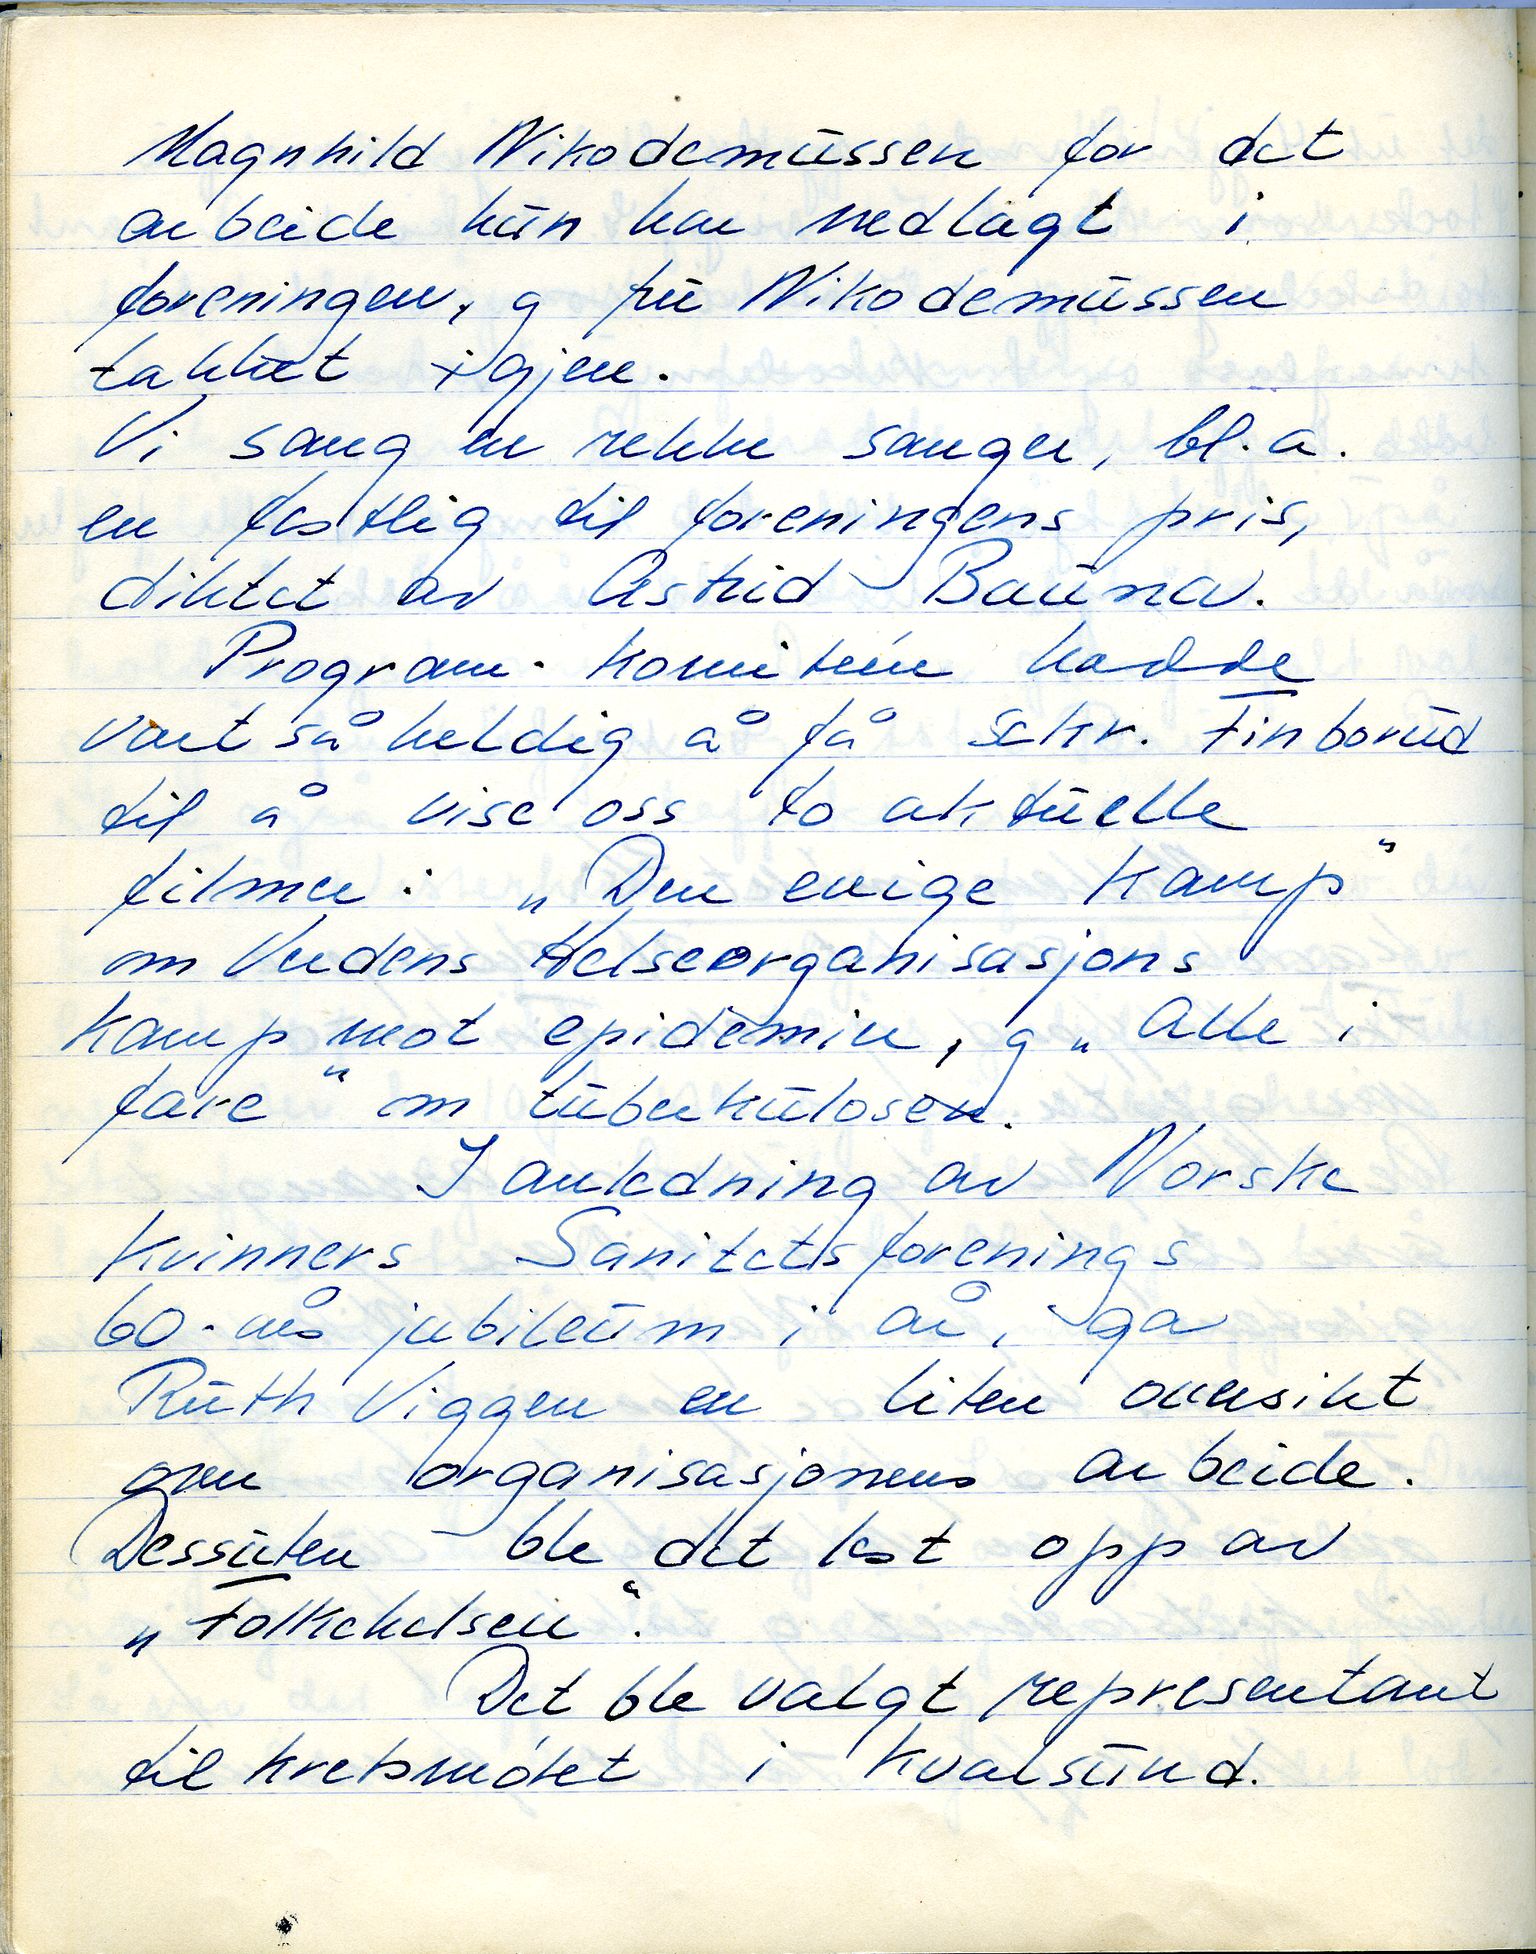 Magnhild Nikodemussen for det
arbeide hun har nedlagt i
foreningen, og fru Nikodemussen
takket igjen.
Vi sang en rekke sanger, bl.a.
en festlig til foreningens pris,
diktet av Astrid Bauna.
Program-komitéen hadde
vært så heldig å få sekr. Finborud
til å vise oss to aktuelle
filmer: „Den evige kamp"
om Verdens Helseorganisasjons
kamp mot epidemier, og „Alle i
fare" om tuberkulosen.
I anledning av Norske
Kvinners Sanitetsforenings
60-års jubileum i år, ga
Ruth Viggen en liten oversikt
over organisasjonens arbeide.
Dessuten ble det lest opp av
„Folkehelsen".
Det ble valgt representant
til kretsmøtet i Kvalsund.